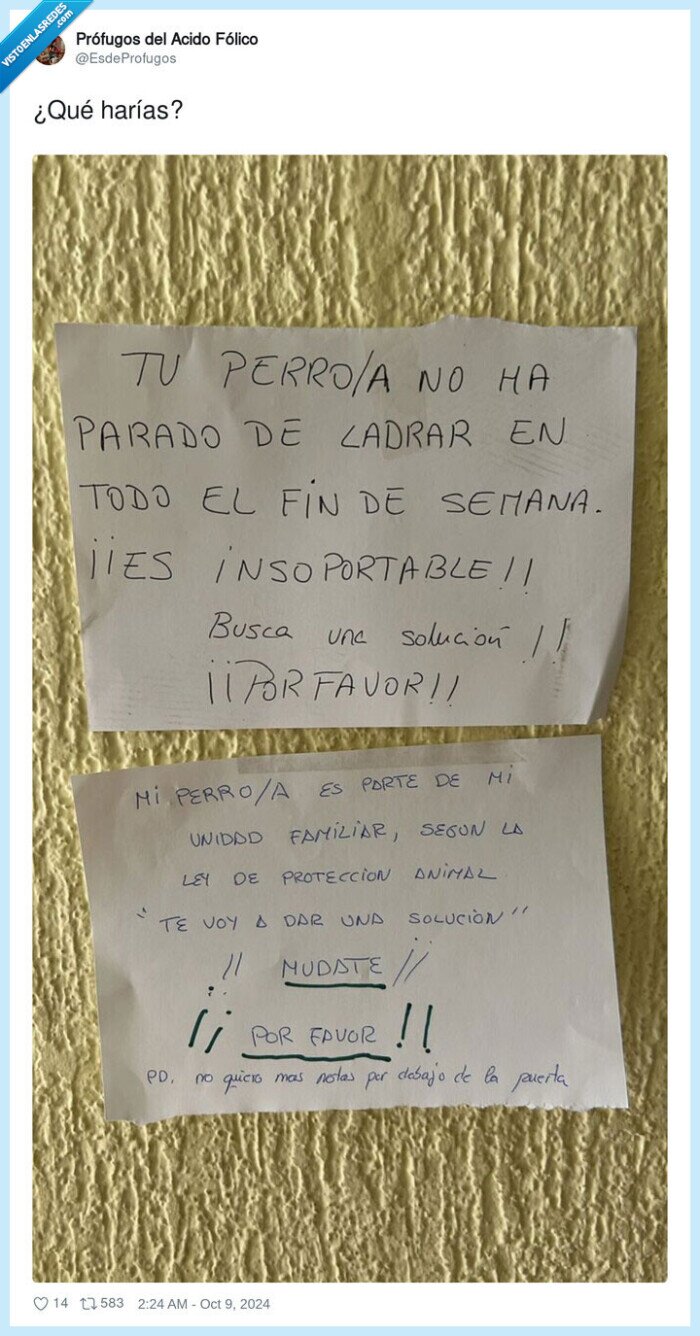 VISTOENLASREDES
.com
Prófugos del Acido Fólico
@EsdeProfugos
¿Qué harías?
TU PERRO/A NO HA
PARADO DE LADRAR EN
TODO EL FIN DE SEMANA.
¡¡ES INSOPORTABLE!!
Busca una solución !!
¡¡POR FAVOR!!
Mi PERRO/A ES PARTE DE Mi
UNIDAD FAMILIAR, SEGUN LA
LEY DE PROTECCION ANIMAL
"TE VOY A DAR UNA SOLUCIÒN"
!! MUDATE ¡¡
¡¡ POR FAVOR !!
PD. no quiero mas notas por debajo de la puerta
14 583 2:24 AM - Oct 9, 2024